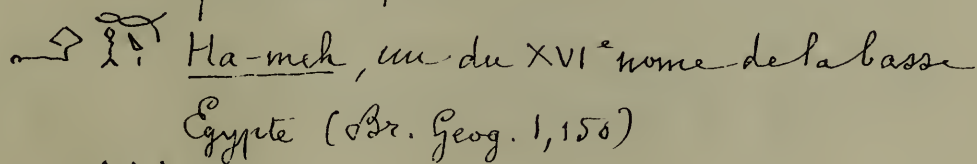 Ha-meh, un du XVIe nome de la basse
Egypte (Br. Geog. 1,150)